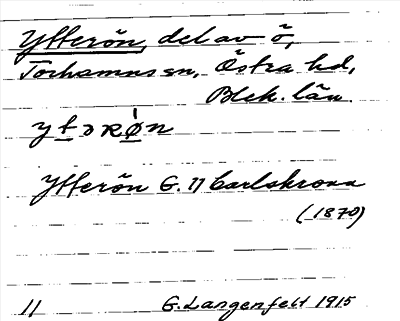 Ytterön, del av ö,
Torhamns sn, Östra hd,
Blek. län.
ytəRön
Ytterön G. 11 Carlskrona
(1870)
11 G. Langenfelt 1915